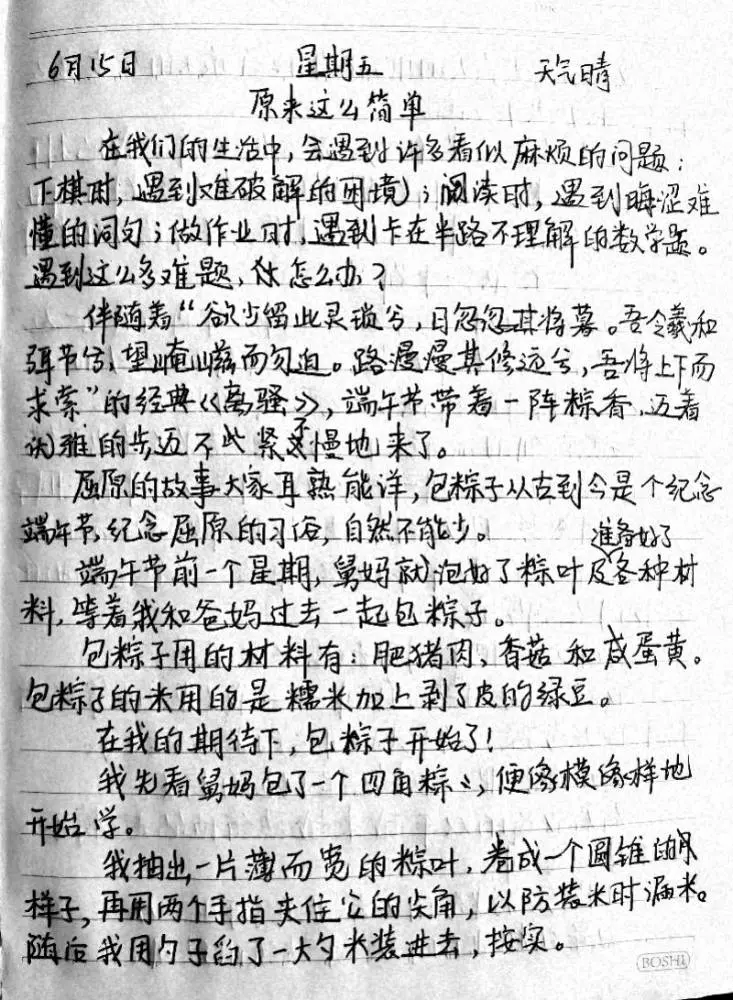 6月15日 星期五 天气晴
原来这么简单
在我们的生活中,会遇到许多看似麻烦的问题:
下棋时,遇到难破解的困境;阅读时,遇到晦涩难
懂的词句;做作业时,遇到卡在半路不理解的数学题。
遇到这么多难题,你怎么办?
伴随着“欲少留此灵琐兮,日忽忽其将暮。吾令羲和
弭节兮,望崦嵫而勿迫。路漫漫其修远兮,吾将上下而
求索”的经典《离骚》,端午节带着一阵粽香,迈着
优雅的步迈不些紧不慢地来了。
屈原的故事大家耳熟能详,包粽子从古到今是个纪念
端午节,纪念屈原的习俗,自然不能少。
准备好了
端午节前一个星期,舅妈就泡好了粽叶及各种材
料,等着我和爸妈过去一起包粽子。
包粽子用的材料有:肥猪肉、香菇和咸蛋黄。
包粽子的米用的是糯米加上剥了皮的绿豆。
在我的期待下,包粽子开始了!
我先看舅妈包了一个四角粽子,便像模像样地
开始学。
我抽出一片薄而宽的粽叶,卷成一个圆锥的
样子,再用两个手指夹住它的尖角,以防装米时漏米。
随后我用勺子舀了一大勺米装进去,按实。
BOSHI